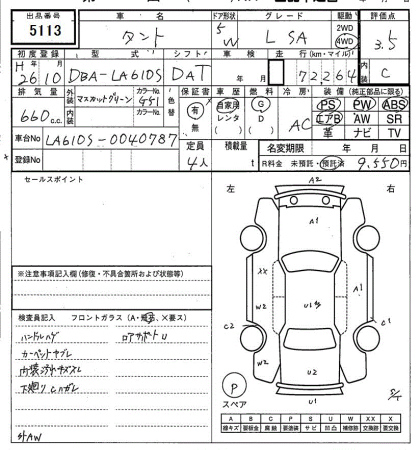 出品番号 車名 ドア形状 グレード 駆動 評価点
5113 タント 5 W L SA 2WD 4WD 3.5
初度登録 型式 シフト 車検 走行(km・マイル) 内装
H 26年 10月 DBA-LA610S DAT 年 月 72264 C
排気量 外装 マスカットグリーン カラーNo. G51 色替 保証書 車歴 燃料 冷房 装備(純正部品に限る)
660 c.c. 内装 カラーNo. 有 無 自家用 レンタ G D AC PS PW ABS
エアB AW SR
革 ナビ TV
車台No. LA610S-0040787 定員 積載量 名変期限 年 月 日
登録No. 4人 t R料金 未預託・預託済 9,550円
セールスポイント
左 右
A2
A1
XX A1
W2 U1
C2 C1
W2 U2
U1
P
スペア
※注意事項記入欄(修復・不具合箇所および状態等)
検査員記入 フロントガラス(A・飛石、×要ス)
ハンドルハゲ ロアサポートU
カーペットヤブレ
内装汚れキズスレ
下廻りサビ
外AW
A B C P S U W XX X
線キズ 要鈑金 腐蝕 要塗装 サビ 凹凸 補修跡 交換跡 要交換